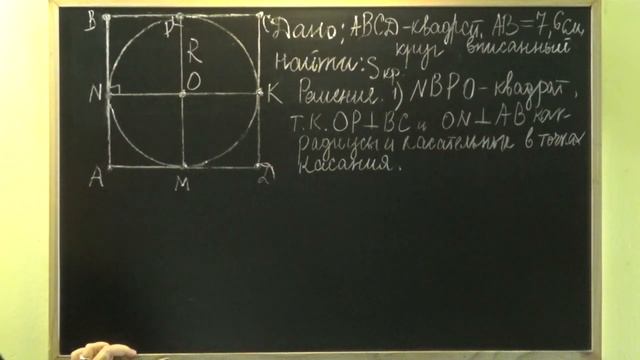 B P C
R
O
N K
A M D
Дано: ABCD-квадрат, AB=7,6 см,
круг вписанный
Найти: Sкр.
Решение. 1) NBPO-квадрат,
т.к. OP⊥BC и ON⊥AB как
радиусы и касательные в точках
касания.